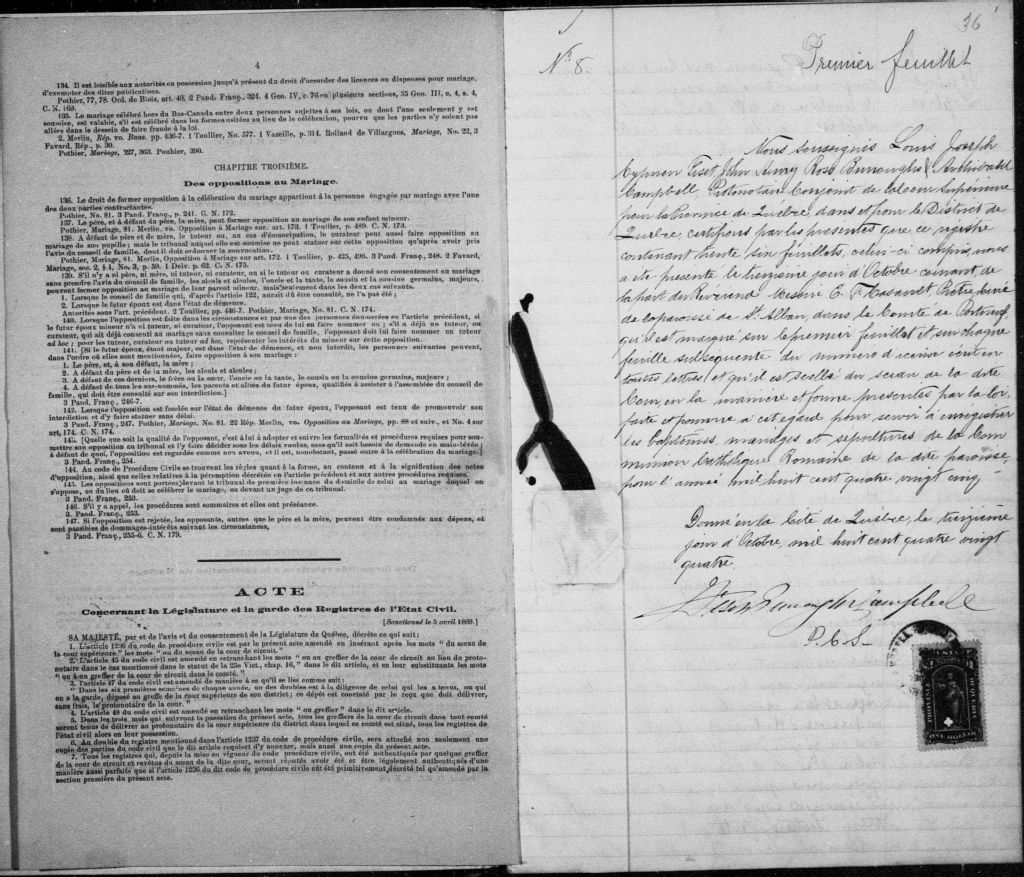 4
134. Il est loisible aux autorités en possession jusqu'à présent du droit d'accorder des licences ou dispenses pour mariage,
d'exempter des dites publications.
Pothier, 77, 78. Ord. de Blois, art. 40, 2 Pand. Franç., 324. 4 Geo. IV, c. 76 en plusieurs sections, 35 Geo. III, c, 4, s. 4,
C. N. 169.
135. Le mariage célébré hors du Bas-Canada entre deux personnes sujettes à ses lois, ou dont l'une seulement y est
soumise, est valable, s'il est célébré dans les formes usitées au lieu de la célébration, pourvu que les parties n'y soient pas
allées dans le dessein de faire fraude à la loi.
2. Merlin, Rép. vo. Bans. pp. 436-7. 1 Toullier, No. 577. 1 Vazeille, p. 314. Rolland de Villargues, Mariage, No. 22, 3
Favard, Rép., p. 30.
Pothier, Mariage, 227, 363. Pouhier, 390.
CHAPITRE TROISIÈME.
Des oppositions au Mariage.
136. Le droit de former opposition à la célébration du mariage appartient à la personne engagée par mariage avec l'une
des deux parties contractantes.
Pothier, No. 81. 3 Pand. Franç., p. 241. C. N. 172.
137. Le père, et à défaut du père, la mère, peut former opposition au mariage de son enfant mineur.
Pothier, Mariage, 81. Merlin. vo. Opposition à Mariage sur. art. 173. 1 Toullier, p. 489. C. N. 173.
138. A défaut de père et de mère, le tuteur, ou, au cas d'émancipation, le curateur peut aussi faire opposition au
mariage de son pupille; mais le tribunal auquel elle est soumise ne peut statuer sur cette opposition qu'après avoir pris
l'avis du conseil de famille, dont il doit ordonner la convocation.
Pothier, Mariage, 81. Merlin, Opposition à Mariage sur art. 172. 1 Toullier, p. 425, 490. 3 Pand. Franç., 248. 2 Favard,
Mariage, sec. 2, § 1, No. 3, p. 59. 1 Delv. p. 62. C. N. 175.
139. S'il n'y a ni père, ni mère, ni tuteur, ni curateur, ou si le tuteur ou curateur a donné son consentement au mariage
sans prendre l'avis du conseil de famille, les aïeuls et aïeules, l'oncle et la tante, le cousin et la cousine germains, majeurs,
peuvent former opposition au mariage de leur parent mineur, mais seulement dans les deux cas suivants.
1. Lorsque le conseil de famille qui, d'après l'article 122, aurait dû être consulté, ne l'a pas été;
2. Lorsque le futur époux est dans l'état de démence.
Autorités sous l'art. précédent. 2 Toullier, pp. 446-7. Pothier, Mariage, No. 81. C. N. 174.
140. Lorsque l'opposition est faite dans les circonstances et par une des personnes énoncées en l'article précédent, si
le futur époux mineur n'a ni tuteur, ni curateur, l'opposant est tenu de lui en faire nommer un; s'il a déjà un tuteur, ou
curateur, qui ait déjà consenti au mariage sans consulter le conseil de famille, l'opposant doit lui faire nommer un tuteur
ad hoc; pour les tuteur, curateur ou tuteur ad hoc, représenter les intérêts du mineur sur cette opposition.
141. [Si le futur époux, étant majeur, est dans l'état de démence, et non interdit, les personnes suivantes peuvent,
dans l'ordre où elles sont mentionnées, faire opposition à son mariage:
1. Le père, et, à son défaut, la mère;
2. A défaut du père et de la mère, les aïeuls et aïeules;
3. A défaut de ces derniers, le frère ou la sœur, l'oncle ou la tante, le cousin ou la cousine germains, majeurs;
4. A défaut de tous les sus-nommés, les parents et alliés du futur époux, qualifiés à assister à l'assemblée du conseil de
famille, qui doit être consulté sur son interdiction.]
3 Pand. Franç., 246-7.
142. Lorsque l'opposition est fondée sur l'état de démence du futur époux, l'opposant est tenu de promouvoir son
interdiction et d'y faire statuer sans délai.
3 Pand. Franç., 247. Pothier, Mariage, No. 81. 22 Rép. Merlin, vo. Opposition au Mariage, pp. 88 et suiv., et No. 4 sur
art, 174. C. N. 174.
143. [Quelle que soit la qualité de l'opposant, c'est à lui à adopter et suivre les formalités et procédures requises pour sou-
mettre son opposition au tribunal et l'y faire décider sous les délais voulus, sans qu'il soit besoin de demande en main-levée;
à défaut de quoi, l'opposition est regardée comme non avenu, et il est, nonobstant, passé outre à la célébration du mariage.]
3 Pand. Franç., 254.
144. Au code de Procédure Civile se trouvent les règles quant à la forme, au contenu et à la signification des actes
d'opposition, ainsi que celles relatives à la péremption décrétée en l'article précédent et aux autres procédures requises.
145. Les oppositions sont portées devant le tribunal de première instance du domicile de celui au mariage duquel on
s'oppose, ou du lieu où doit se célébrer le mariage, ou devant un juge de ce tribunal.
3 Pand. Franç., 253.
146. S'il y a appel, les procédures sont sommaires et elles ont préséance.
3. Pand. Franç., 253.
147. Si l'opposition est rejetée, les opposants, autres que le père et la mère, peuvent être condamnés aux dépens, et
sont passibles de dommages-intérêts suivant les circonstances.
3 Pand. Franç., 255-6. C. N. 179.
ACTE
Concernant la Législature et la garde des Registres de l'Etat Civil.
[Sanctionné le 5 avril 1869.]
SA MAJESTÉ, par et de l'avis et du consentement de la Législature de Québec, décrète ce qui suit:
1. L'article 1236 du code de procédure civile est par le présent acte amendé en insérant après les mots "du sceau de
la cour supérieure" les mots "ou du sceau de la cour de circuit."
2. L'article 45 du code civil est amendé en retranchant les mots "ou au greffier de la cour de circuit au lieu du proto-
notaire dans le cas mentionné dans le statut de la 25e Vict., chap. 16," dans le dit article, et en leur substituants les mots
"ou à un greffier de la cour de circuit dans le comté."
3. l'article 47 du code civil est amendé de manière à ce qu'il se lise comme suit:
"Dans les six premières semaines de chaque année, un des doubles est à la diligence de celui qui les a tenus, ou qui
en a la garde, déposé au greffe de la cour supérieure de son district; ce dépôt est constaté par le reçu que doit délivrer,
sans frais, le protonotaire de la cour."
4. L'article 48 du code civil est amendé en retranchant les mots "ou greffier" dans le dit article.
5. Dans les trois mois qui suivront la passation du présent acte, tous les greffiers de la cour de circuit dans tout comté
seront tenus de délivrer au protonotaire de la cour supérieure du district dans lequel ce comté est situé, tous les registres de
l'état civil alors en leur possession.
6. Au double du registre mentionné dans l'article 1237 du code de procédure civile, sera attaché non seulement une
copie des parties du code civil que le dit article requiert d'y annexer, mais aussi une copie du présent acte.
7. Tous les registres qui, depuis la mise en vigueur du code procédure civile, ont été authentiqués par quelque greffier
de la cour de circuit et revêtus du sceau de la dite cour, seront réputés avoir été et être légalement authentiqués d'une
manière aussi parfaite que si l'article 1236 du dit code de procédure civile eût été primitivement décrété tel qu'amendé par la
section première du présent acte.
36
No 8.
Premier feuillet
Nous soussignés Louis Joseph
Cyprien Fiset John Henry Ross Burroughs & Archibald
Campbell Protonotaire Conjoint de la Cour Supérieure
pour la Province de Québec, dans et pour le District de
Québec, certifions par les presentes que ce registre
contenant trente six feuillets, celui-ci compris, nous
a été presenté le treizieme jour d'Octobre courant, de
la part du Révérend Messire E. F. Casault Prêtre Curé
de la paroisse de St. Alban, dans le Comté de Portneuf,
qu'il est marqué sur le premier feuillet et sur chaque
feuille subséquente du numero d'icelui écrit en
toutes lettres, et qu'il est scellé du sceau de la dite
Cour, en la manière et forme presentes par la loi,
faite et pourvue à cet egard pour servir à enregistrer
les baptêmes, mariages et sépultures de la Com-
munion Catholique Romaine de la dite paroisse,
pour l'année mil huit cent quatre vingt cinq
Donné en la Cité de Québec, le treizième
jour d'Octobre, mil huit cent quatre vingt
quatre.
Fiset Burroughs Campbell
P.C.S.
PROVINCE DE QUEBEC
ONE DOLLAR